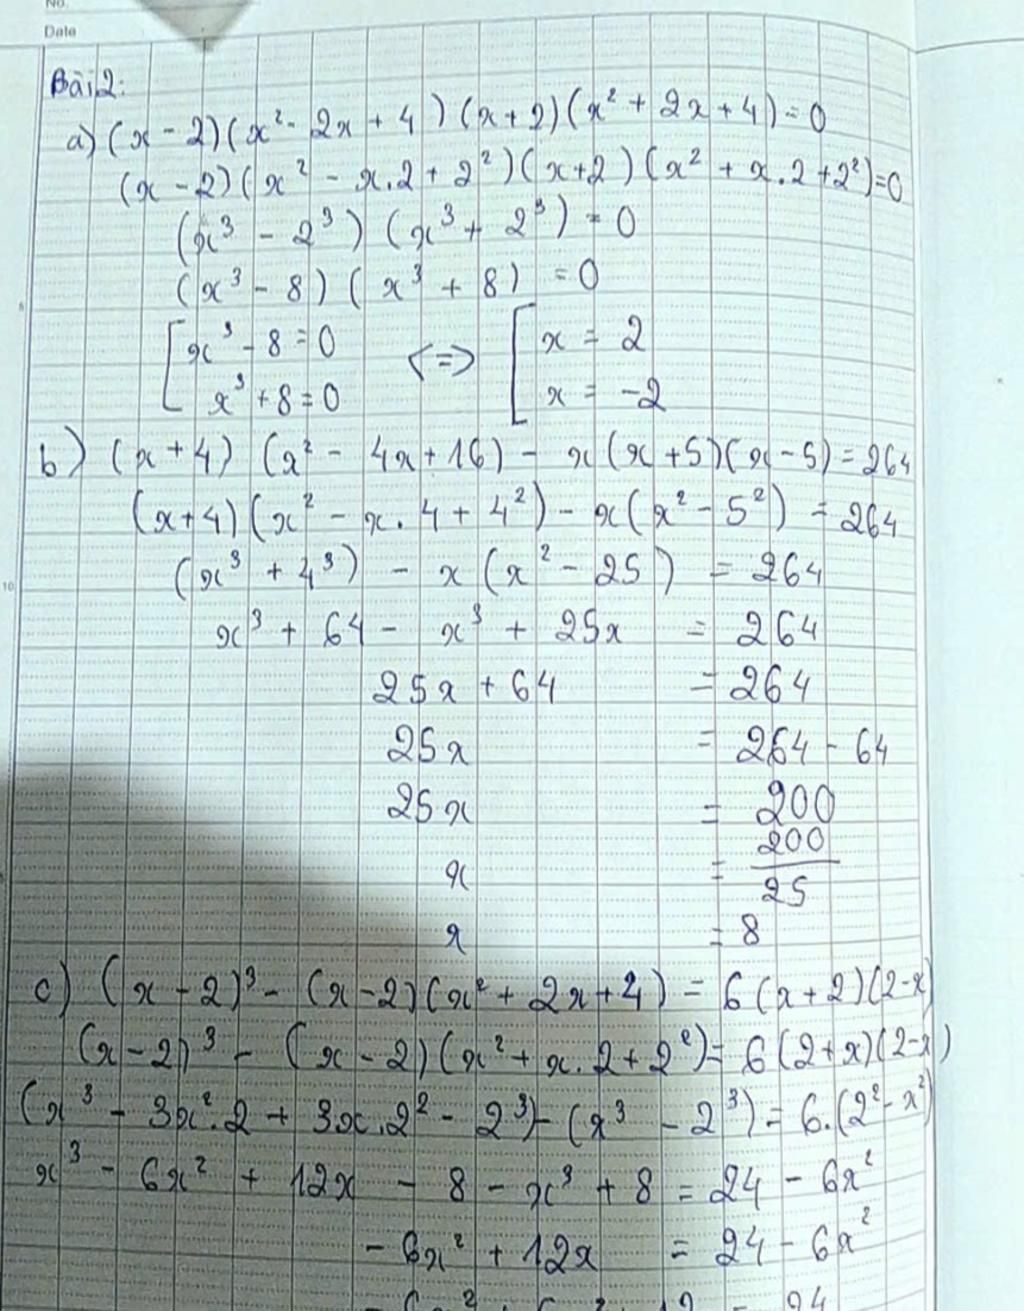 No.
Date
Bài 2:
a) (x - 2)(x² - 2x + 4)(x + 2)(x² + 2x + 4) = 0
(x - 2)(x² - x.2 + 2²)(x + 2)(x² + x.2 + 2²) = 0
(x³ - 2³)(x³ + 2³) = 0
(x³ - 8)(x³ + 8) = 0
[x³ - 8 = 0 <=> [x = 2
x³ + 8 = 0 x = -2
b) (x + 4)(x² - 4x + 16) - x(x + 5)(x - 5) = 264
(x + 4)(x² - x.4 + 4²) - x(x² - 5²) = 264
(x³ + 4³) - x(x² - 25) = 264
x³ + 64 - x³ + 25x = 264
25x + 64 = 264
25x = 264 - 64
25x = 200
x = 200/25
x = 8
c) (x - 2)³ - (x - 2)(x² + 2x + 4) = 6(x + 2)(2 - x)
(x - 2)³ - (x - 2)(x² + x.2 + 2²) = 6(2 + x)(2 - x)
(x³ - 3x².2 + 3x.2² - 2³) - (x³ - 2³) = 6.(2² - x²)
x³ - 6x² + 12x - 8 - x³ + 8 = 24 - 6x²
- 6x² + 12x = 24 - 6x²